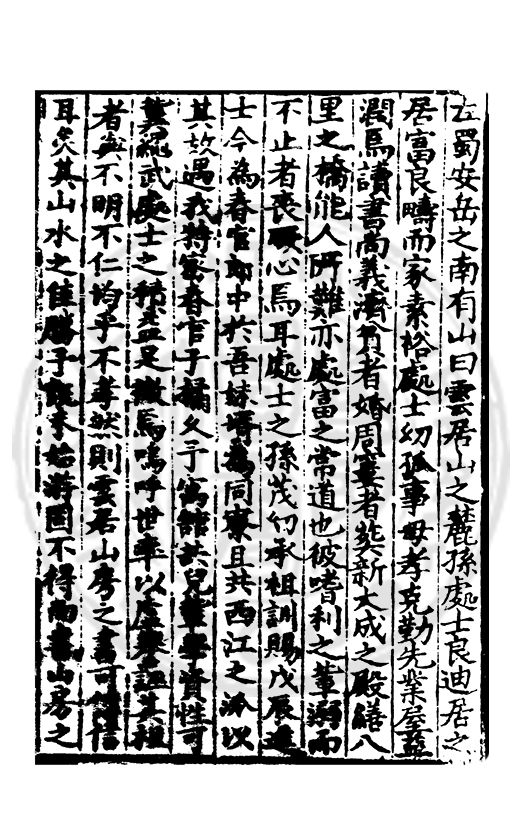 在蜀安岳之南有山曰雲居山之麓孫處士良迪居之
居富良疇而家素裕處士幼孤事母孝克勤先業屋益
潤焉讀書尚義濟貧者婚周寠者葬新大成之殿繕八
里之橋能人所難亦處富之常道也彼嗜利之輩溺而
不止者喪厥心焉耳處士之孫茂幼承祖訓賜戊辰進
士今為春官郎中於吾妹壻為同寮且共西江之泒以
其故過我特篤春官子橘久于寓館共兒輩學資性可
冀經武處士之積善足徵焉嗚呼世率以虛譽誣其祖
者與不明不仁均乎不孝然則雲居山房之書可信
耳矣其山水之佳勝予未始游固不得而書山房之